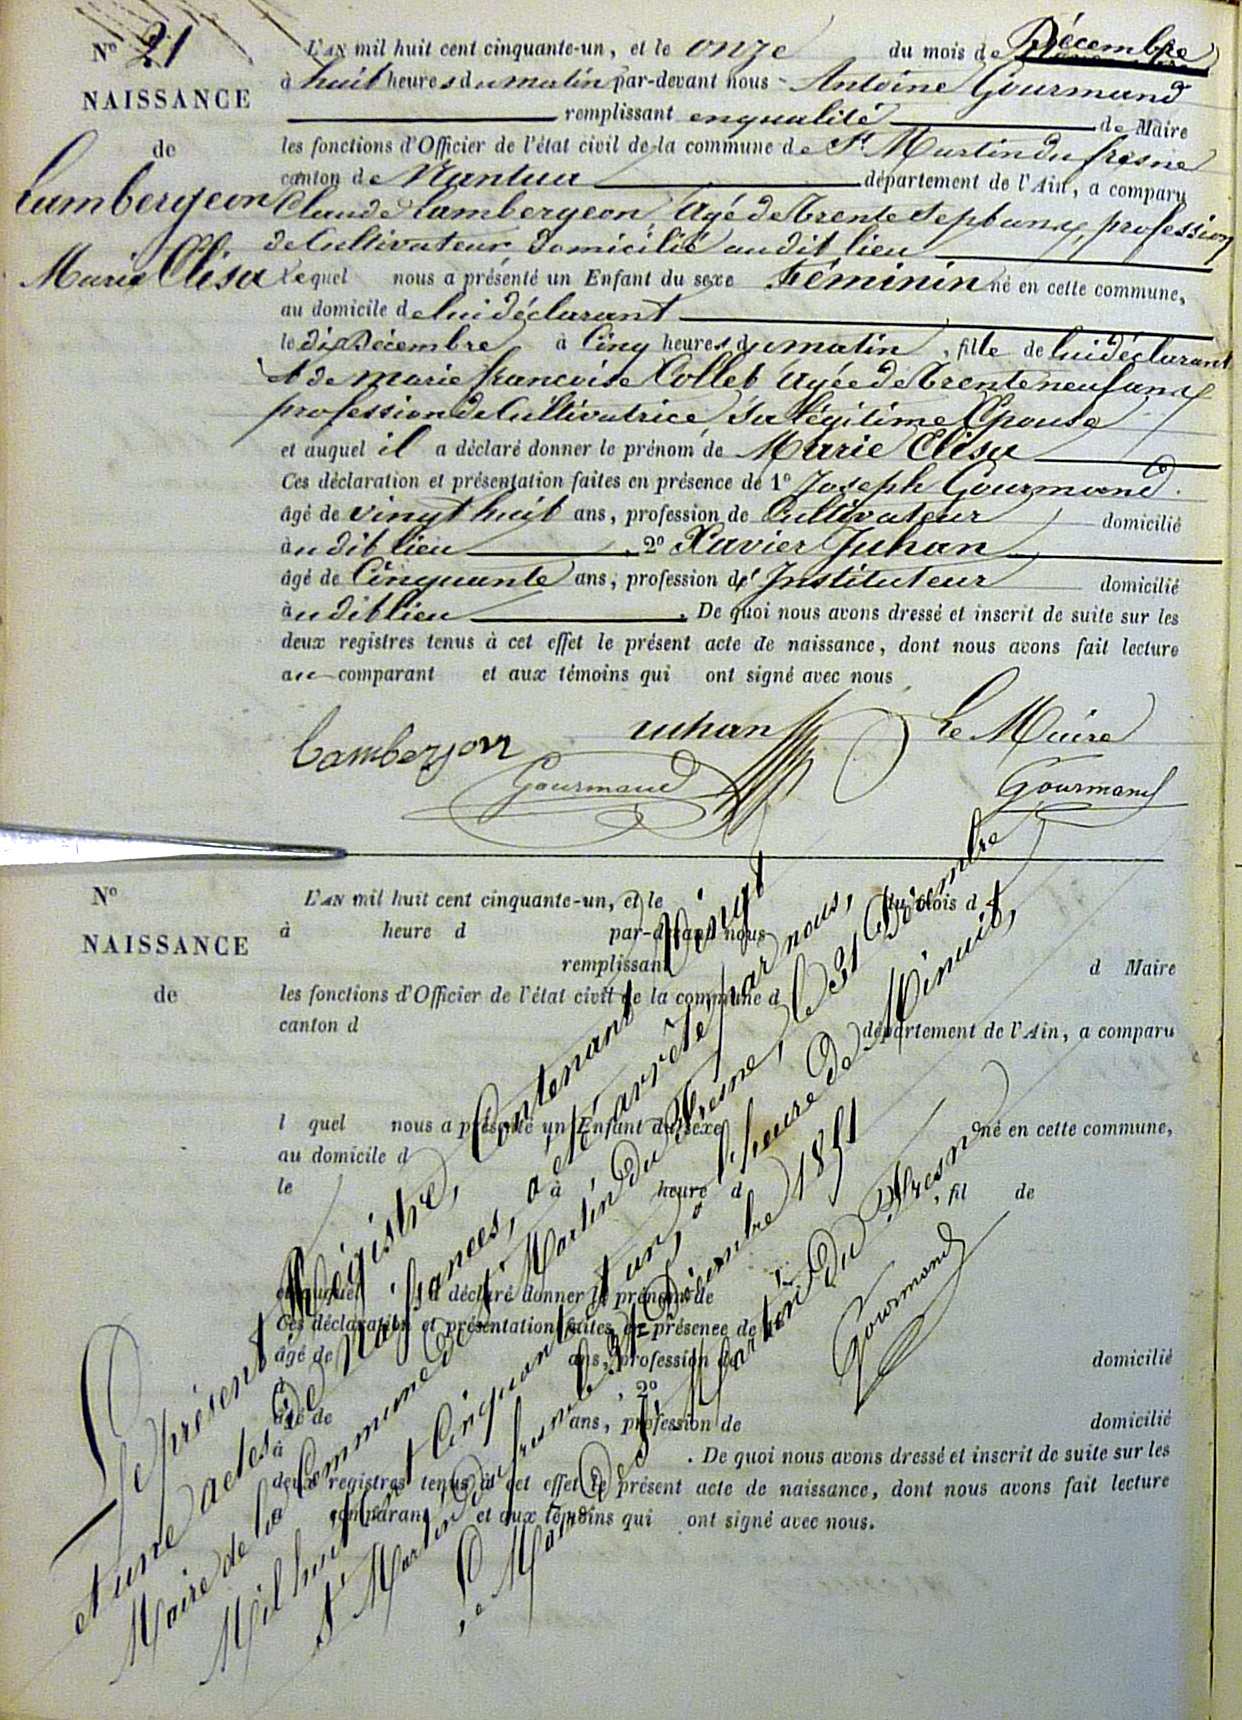 N° 21
NAISSANCE
de
Lambergeon
Marie Elisa
L'AN mil huit cent cinquante-un, et le onze du mois de Décembre
à huit heures du matin par-devant nous Antoine Gourmand
remplissant en qualité de Maire
les fonctions d'Officier de l'état civil de la commune de St Martin du fresne
canton de Nantua département de l'Ain, a comparu
Claude Lambergeon âgé de trente sept ans, profession
de Cultivateur, Domicilié au dit lieu
lequel nous a présenté un Enfant du sexe Féminin né en cette commune,
au domicile de lui déclarant
le dix Décembre à Cinq heures du matin, fille de lui déclarant
et de marie françoise Collet âgée de trente neuf ans
profession de Cultivatrice sa légitime Epouse
et auquel il a déclaré donner le prénom de Marie Elisa
Ces déclaration et présentation faites en présence de 1° Joseph Gourmand
âgé de vingt huit ans, profession de Cultivateur domicilié
au dit lieu . 2° Xavier Juhan
âgé de Cinquante ans, profession d' Instituteur domicilié
au dit lieu . De quoi nous avons dressé et inscrit de suite sur les
deux registres tenus à cet effet le présent acte de naissance, dont nous avons fait lecture
au comparant et aux témoins qui ont signé avec nous
Lamberjon Juhan Le Maire
Gourmand Gourmand
N°
NAISSANCE
de
L'AN mil huit cent cinquante-un, et le du mois d
à heure d par-devant nous
remplissant d Maire
les fonctions d'Officier de l'état civil de la commune d
canton d département de l'Ain, a comparu
l quel nous a présenté un Enfant du sexe né en cette commune,
au domicile d
le à heure d , fil de
et auquel a déclaré donner le prénom de
Ces déclaration et présentation faites en présence de 1°
âgé de ans, profession de domicilié
à , 2°
âgé de ans, profession de domicilié
à . De quoi nous avons dressé et inscrit de suite sur les
deux registres tenus à cet effet le présent acte de naissance, dont nous avons fait lecture
comparant et aux témoins qui ont signé avec nous.
Le présent Régistre, Contenant Vingt
et une actes de Naissances, a été arrêté par nous,
Maire de la Commune de St Martin du Fresne, le 31 Décembre
Mil huit cent Cinquante et un, à l'heure de Minuit,
St Martin du fresne le 31 Décembre 1851
Le Maire de St Martin du Fresne
Gourmand